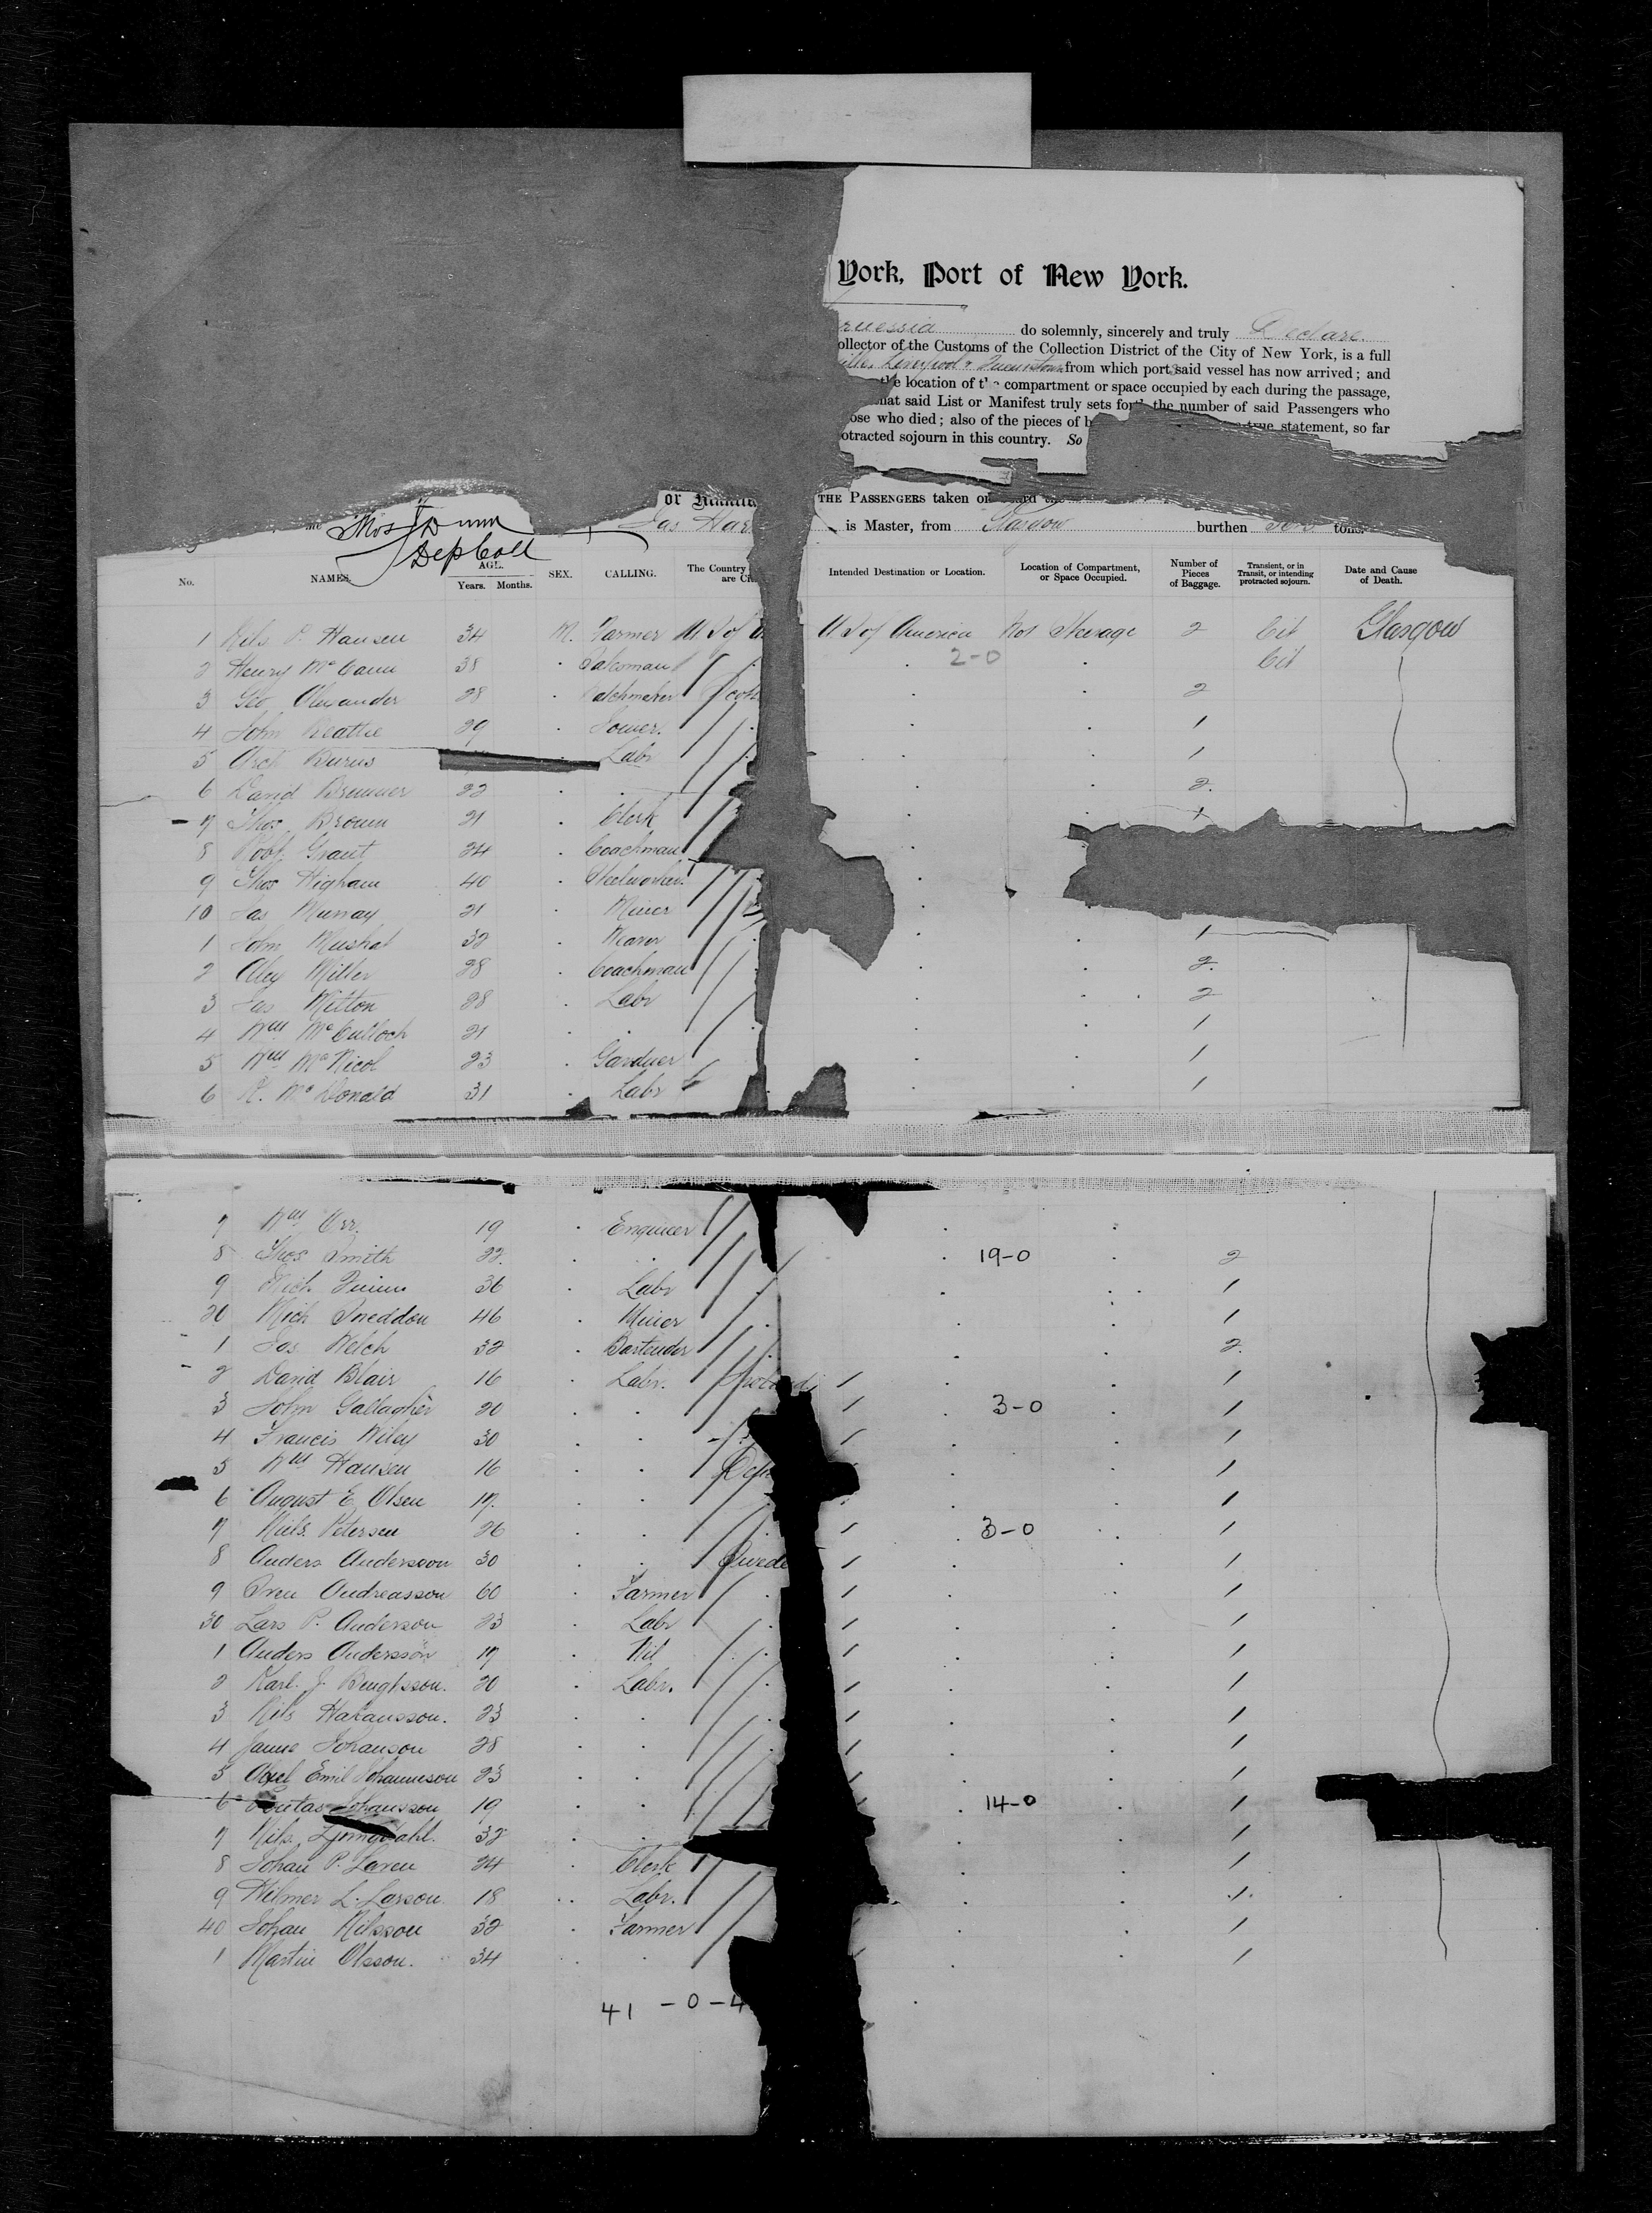 York, Port of New York.
ruessia do solemnly, sincerely and truly Declare.
ollector of the Customs of the Collection District of the City of New York, is a full
ille, Liverpool & Queenstown from which ports said vessel has now arrived; and
the location of the compartment or space occupied by each during the passage,
hat said List or Manifest truly sets forth the number of said Passengers who
ose who died; also of the pieces of b true statement, so far
otracted sojourn in this country. So
or THE PASSENGERS taken on
Thos Dunn Jas Har is Master, from Glasgow burthen tons.
Dep Coll
No. NAMES. AGE. Years. Months. SEX. CALLING. The Country are Ci Intended Destination or Location. Location of Compartment, or Space Occupied. Number of Pieces of Baggage. Transient, or in Transit, or intending protracted sojourn. Date and Cause of Death.
1 Nils P. Hansen 34 M. Farmer U S of U S of America Not Steerage 2 Cit Glasgow
2 Henry McCann 38 . Salesman . 2-0 . Cit
3 Geo Alexander 28 . Watchmaker Scot . . 2
4 John Beattie 29 . Joiner. . . 1
5 Arch Burns Labr . . 1
6 David Bremner 22 . . . . 2.
7 Thos Brown 21 . Clerk . 1
8 Robt. Grant 24 . Coachman .
9 Thos Higham 40 . Steelworker. .
10 Jas Murray 21 . Miner .
1 John Mushat 32 . Weaver . . 1
2 Alex Miller 28 . Coachman . . 2.
3 Jas Mitton 28 . Labr . . 2
4 Wm McCulloch 21 . . . . 1
5 Wm McNicol 23 . Gardner . . 1
6 R. McDonald 31 . Labr . . 1
7 Wm Orr. 19 . Engineer . .
8 Thos Smith 22. . . . 19-0 . 2
9 Mich Quinn 36 . Labr . . 1
20 Mich Sneddon 46 . Miner . . 1
1 Jas Welch 32 . Bartender . . 2.
2 David Blair 16 . Labr. . . 1
3 John Gallagher 20 . . . 3-0 . 1
4 Francis Wiley 30 . . . . 1
5 Wm Hansen 16 . . . . 1
6 August E Olsen 17. . . . . 1
7 Niels Petersen 26 . . . 3-0 . 1
8 Anders Andersson 30 . . Swede . . 1
9 Sven Andreasson 60 . Farmer . . 1
30 Lars P. Anderson 23 . Labr . . 1
1 Anders Andersson 17 . Nil . . 1
2 Karl. J. Bengtsson. 20 . Labr. . . 1
3 Nils Hakansson. 23 . . . . 1
4 Janne Johanson 28 . . . . 1
5 Axel Emil Johanneson 23 . . . . 1
6 Johansson 19 . . . 14-0 . 1
7 Nils 32 . . . . 1
8 Johan P. Laven 24 . Clerk . . 1
9 Hilmer L. Larson. 18 . Labr. . . 1
40 Johan Nilsson 32 . Farmer . . 1
1 Martin Olsson. 34 . . . . 1
41 - 0 - 4